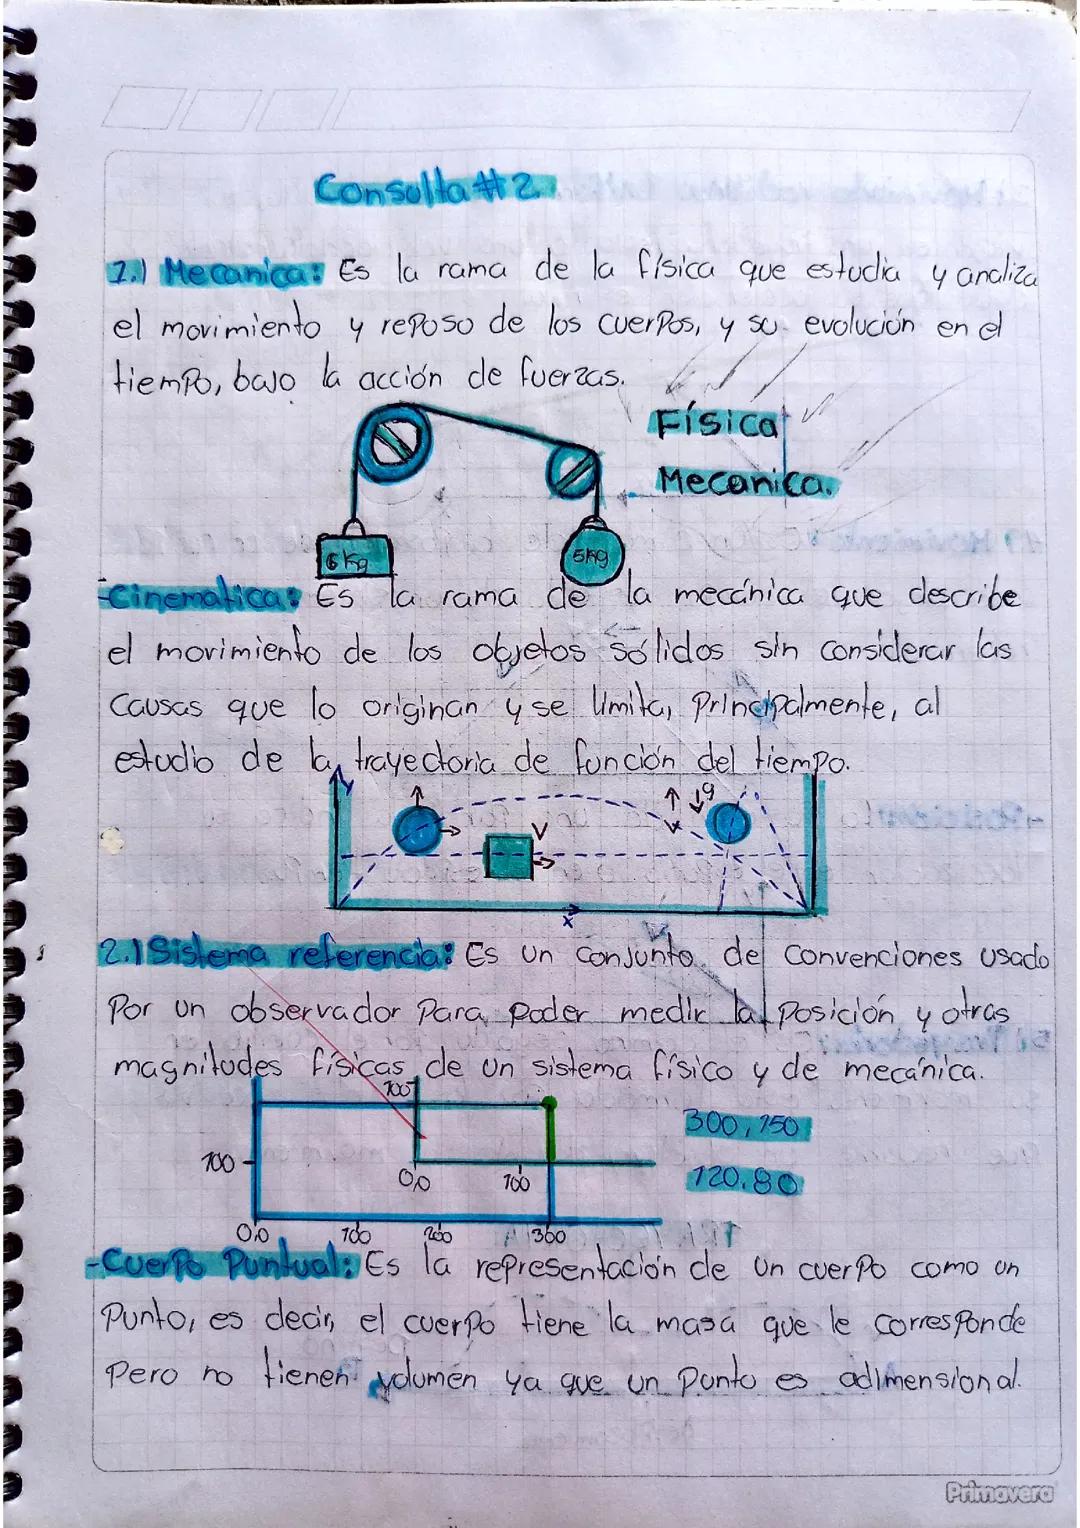 Consulta #2
1.) Mecanica: Es la rama de la física que estudia y analiza
el movimiento y reposo de los cuerpos, y su evolución en el
tiempo, bajo la acción de fuerzas.
Física
Mecanica.
6kg
5kg
-Cinematica: Es la rama de la mecánica que describe
el movimiento de los objetos sólidos sin considerar las
causas que lo originan y se limita, principalmente, al
estudio de la trayectoria de función del tiempo.
y
g
V
x
2.) Sistema referencia: Es un conjunto de convenciones usado
por un observador para poder medir la posición y otras
magnitudes físicas de un sistema físico y de mecánica.
100
300, 150
100
0,0
100
120.80
0,0
100
200
300
-Cuerpo Puntual: Es la representación de un cuerpo como un
punto, es decir, el cuerpo tiene la masa que le corresponde
pero no tienen volumen ya que un punto es adimensional.
Primavera